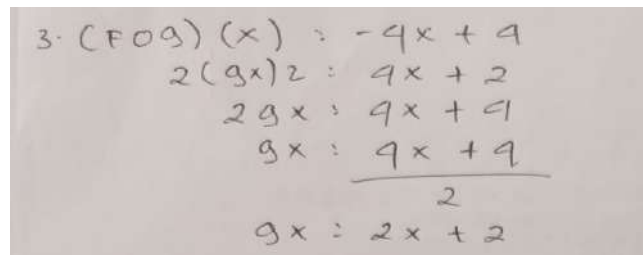 3. (FOg) (x) : -4x + 4
2(gx)2 : 4x + 2
2gx : 4x + 4
gx : 4x + 4
2
gx : 2x + 2